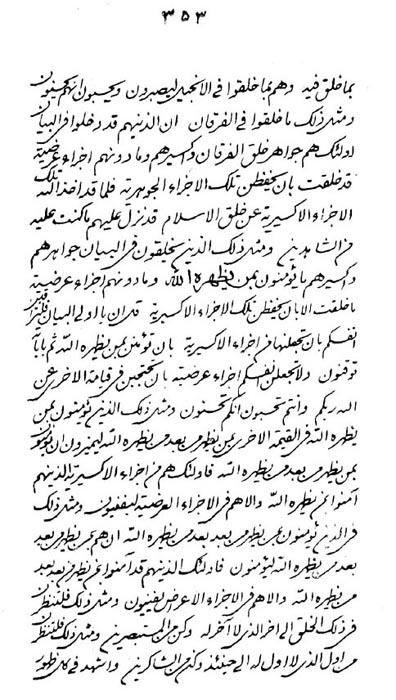 ٣٥٣
بما خلق فيه وهم بما خلقوا في الانجيل ليبصرون ويحسبون انهم يحسنون
ومثل ذلك ما خلقوا في الفرقان ان الذينهم قد دخلوا في البيان
اولئك هم جواهر خلق الفرقان واكسيرهم وما دونهم اجزاء عرضية
قد خلقت بان يحفظن تلك الاجزاء الجوهرية فلما قد اخذ الله تلك
الاجزاء الاكسيرية عن خلق الاسلام قد نزل عليهم ما كنت عليه
من الشاهدين ومثل ذلك الذين يخلقون في البيان جواهرهم
واكسيرهم ما يؤمنون بمن يظهره الله وما دونهم اجزاء عرضية
ما خلقت الا بان يحفظن تلك الاجزاء الاكسيرية قل ان يا اولي البيان
انفسكم بان تجعلنها من اجزاء الاكسيرية بان تؤمنن بمن يظهره الله ثم بآياته
توقنون ولا تجعلن انفسكم اجزاء عرضية بان تحتجبن في قيامة الاخرى عن
الله ربكم وانتم تحسبون انكم تحسنون ومثل ذلك الذين يؤمنون بمن
يظهره الله في القيمة الاخرى بمن يظهر من بعد من يظهره الله ليميزون ان يؤمنون
بمن يظهر من بعد من يظهره الله فاولئك هم من اجزاء الاكسيرية الذينهم
آمنوا بمن يظهره الله والا هم في الاجزاء العرضية ليفنيون ومثل ذلك
في الذين يؤمنون بمن يظهر من بعد بعد من يظهره الله ان هم بمن يظهر من بعد بعد
بعد من يظهره الله ليؤمنون فاولئك الذينهم قد آمنوا بمن يظهر من بعد بعد
من يظهره الله والا هم في الاجزاء الاعراض يفنيون ومثل ذلك فلتنظرن
في ذلك الخلق الى اخر الذي لا آخر له وكن من المستبصرين ومثل ذلك فلتنظرن
من اول الذي لا اول له الى حينئذ وكن من الشاكرين واشهد في كل ظهور